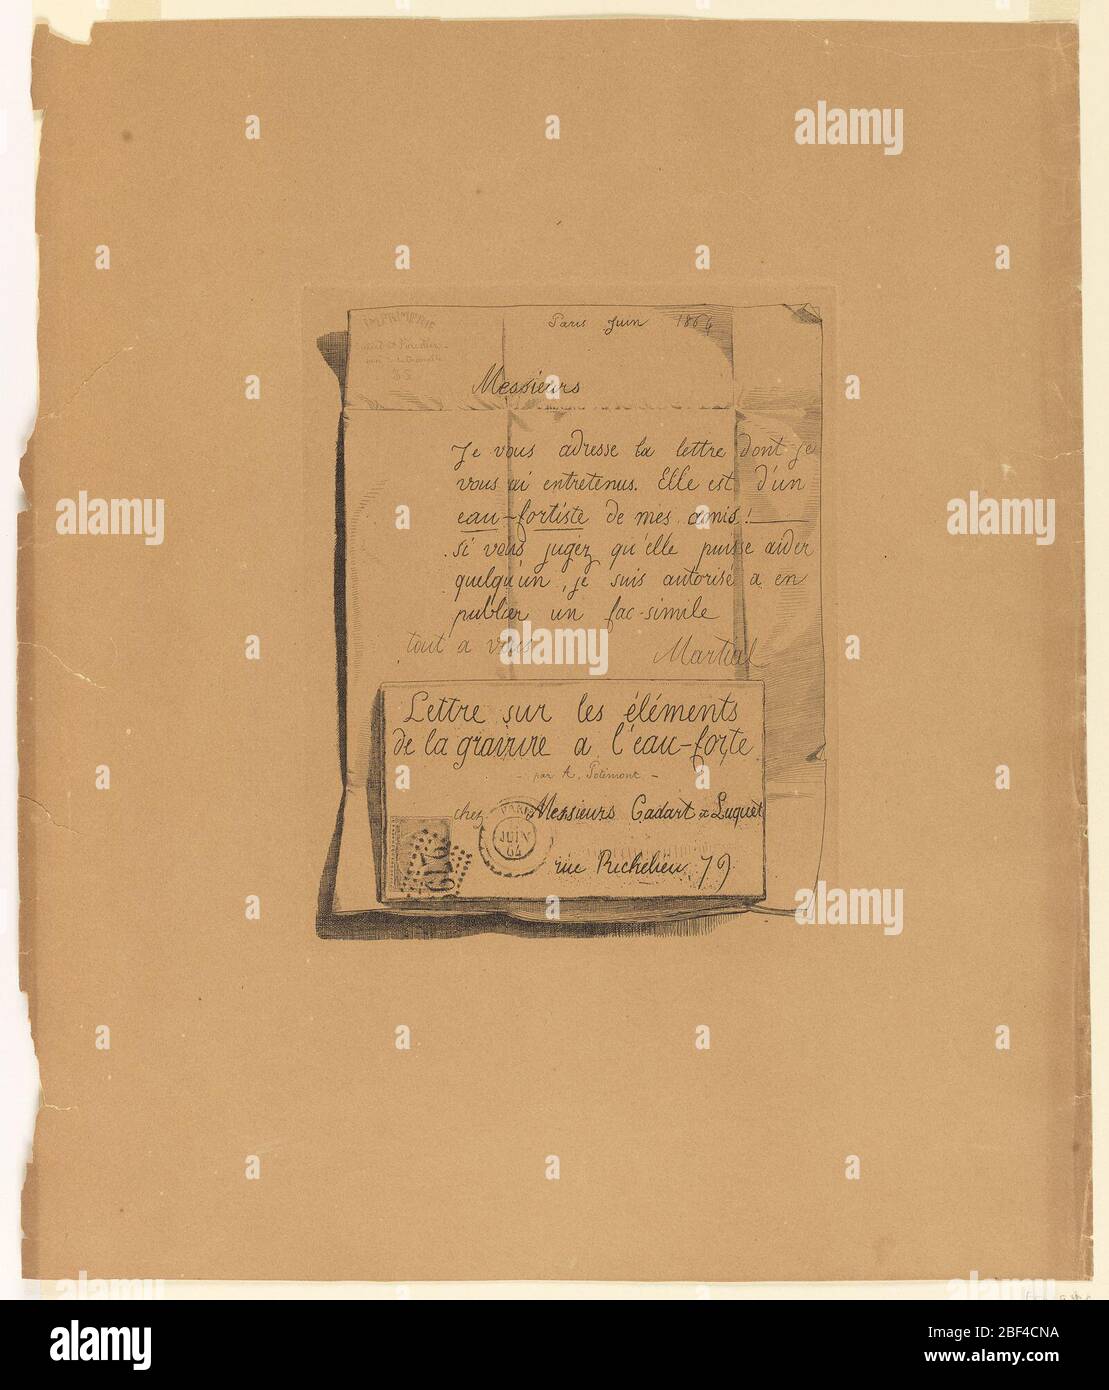 IMPRIMERIE
35
Paris Juin 1864
Messieurs
Je vous adresse la lettre dont je
vous ai entretenus. Elle est d'un
eau-fortiste de mes amis!
si vous jugez qu'elle puisse aider
quelqu'un, je suis autorisé a en
publier un fac-simile
tout a vous Martial
Lettre sur les éléments
de la gravure a l'eau-forte
- par A. Potémont -
chez Messieurs Cadart & Luquet
PARIS
JUIN
64
2179
rue Richelieu, 79
alamy
Image ID: 2BF4CNA
www.alamy.com